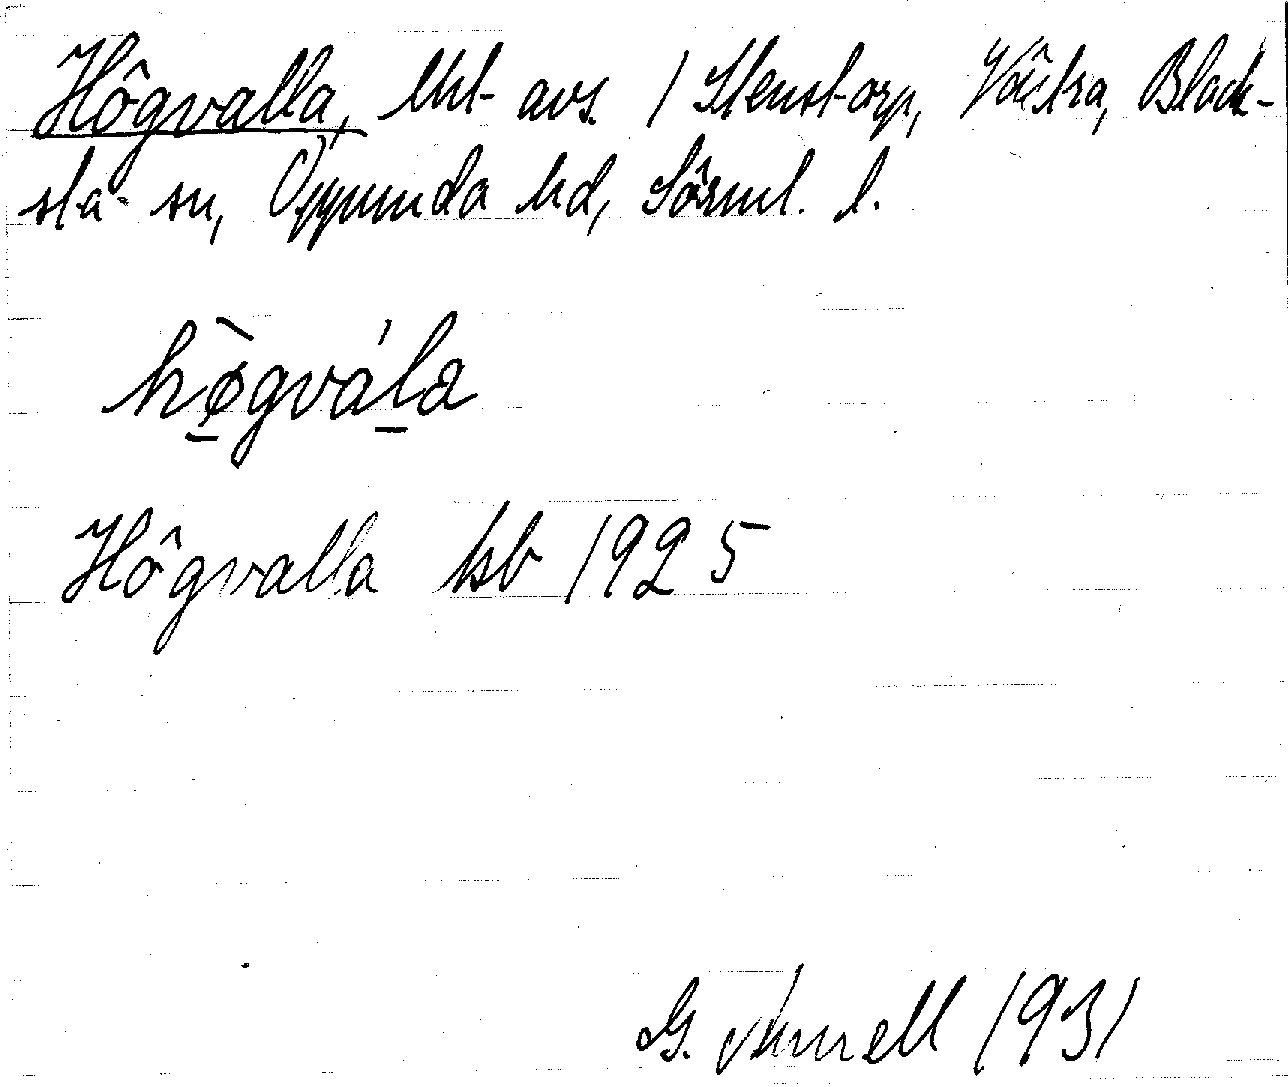 Högvalla, lht avs. / Stenstorp, Västra, Black-
sta sn, Oppunda hd, Sörml. l.
hø̀gvála
Högvalla kb 1925
G. 1931